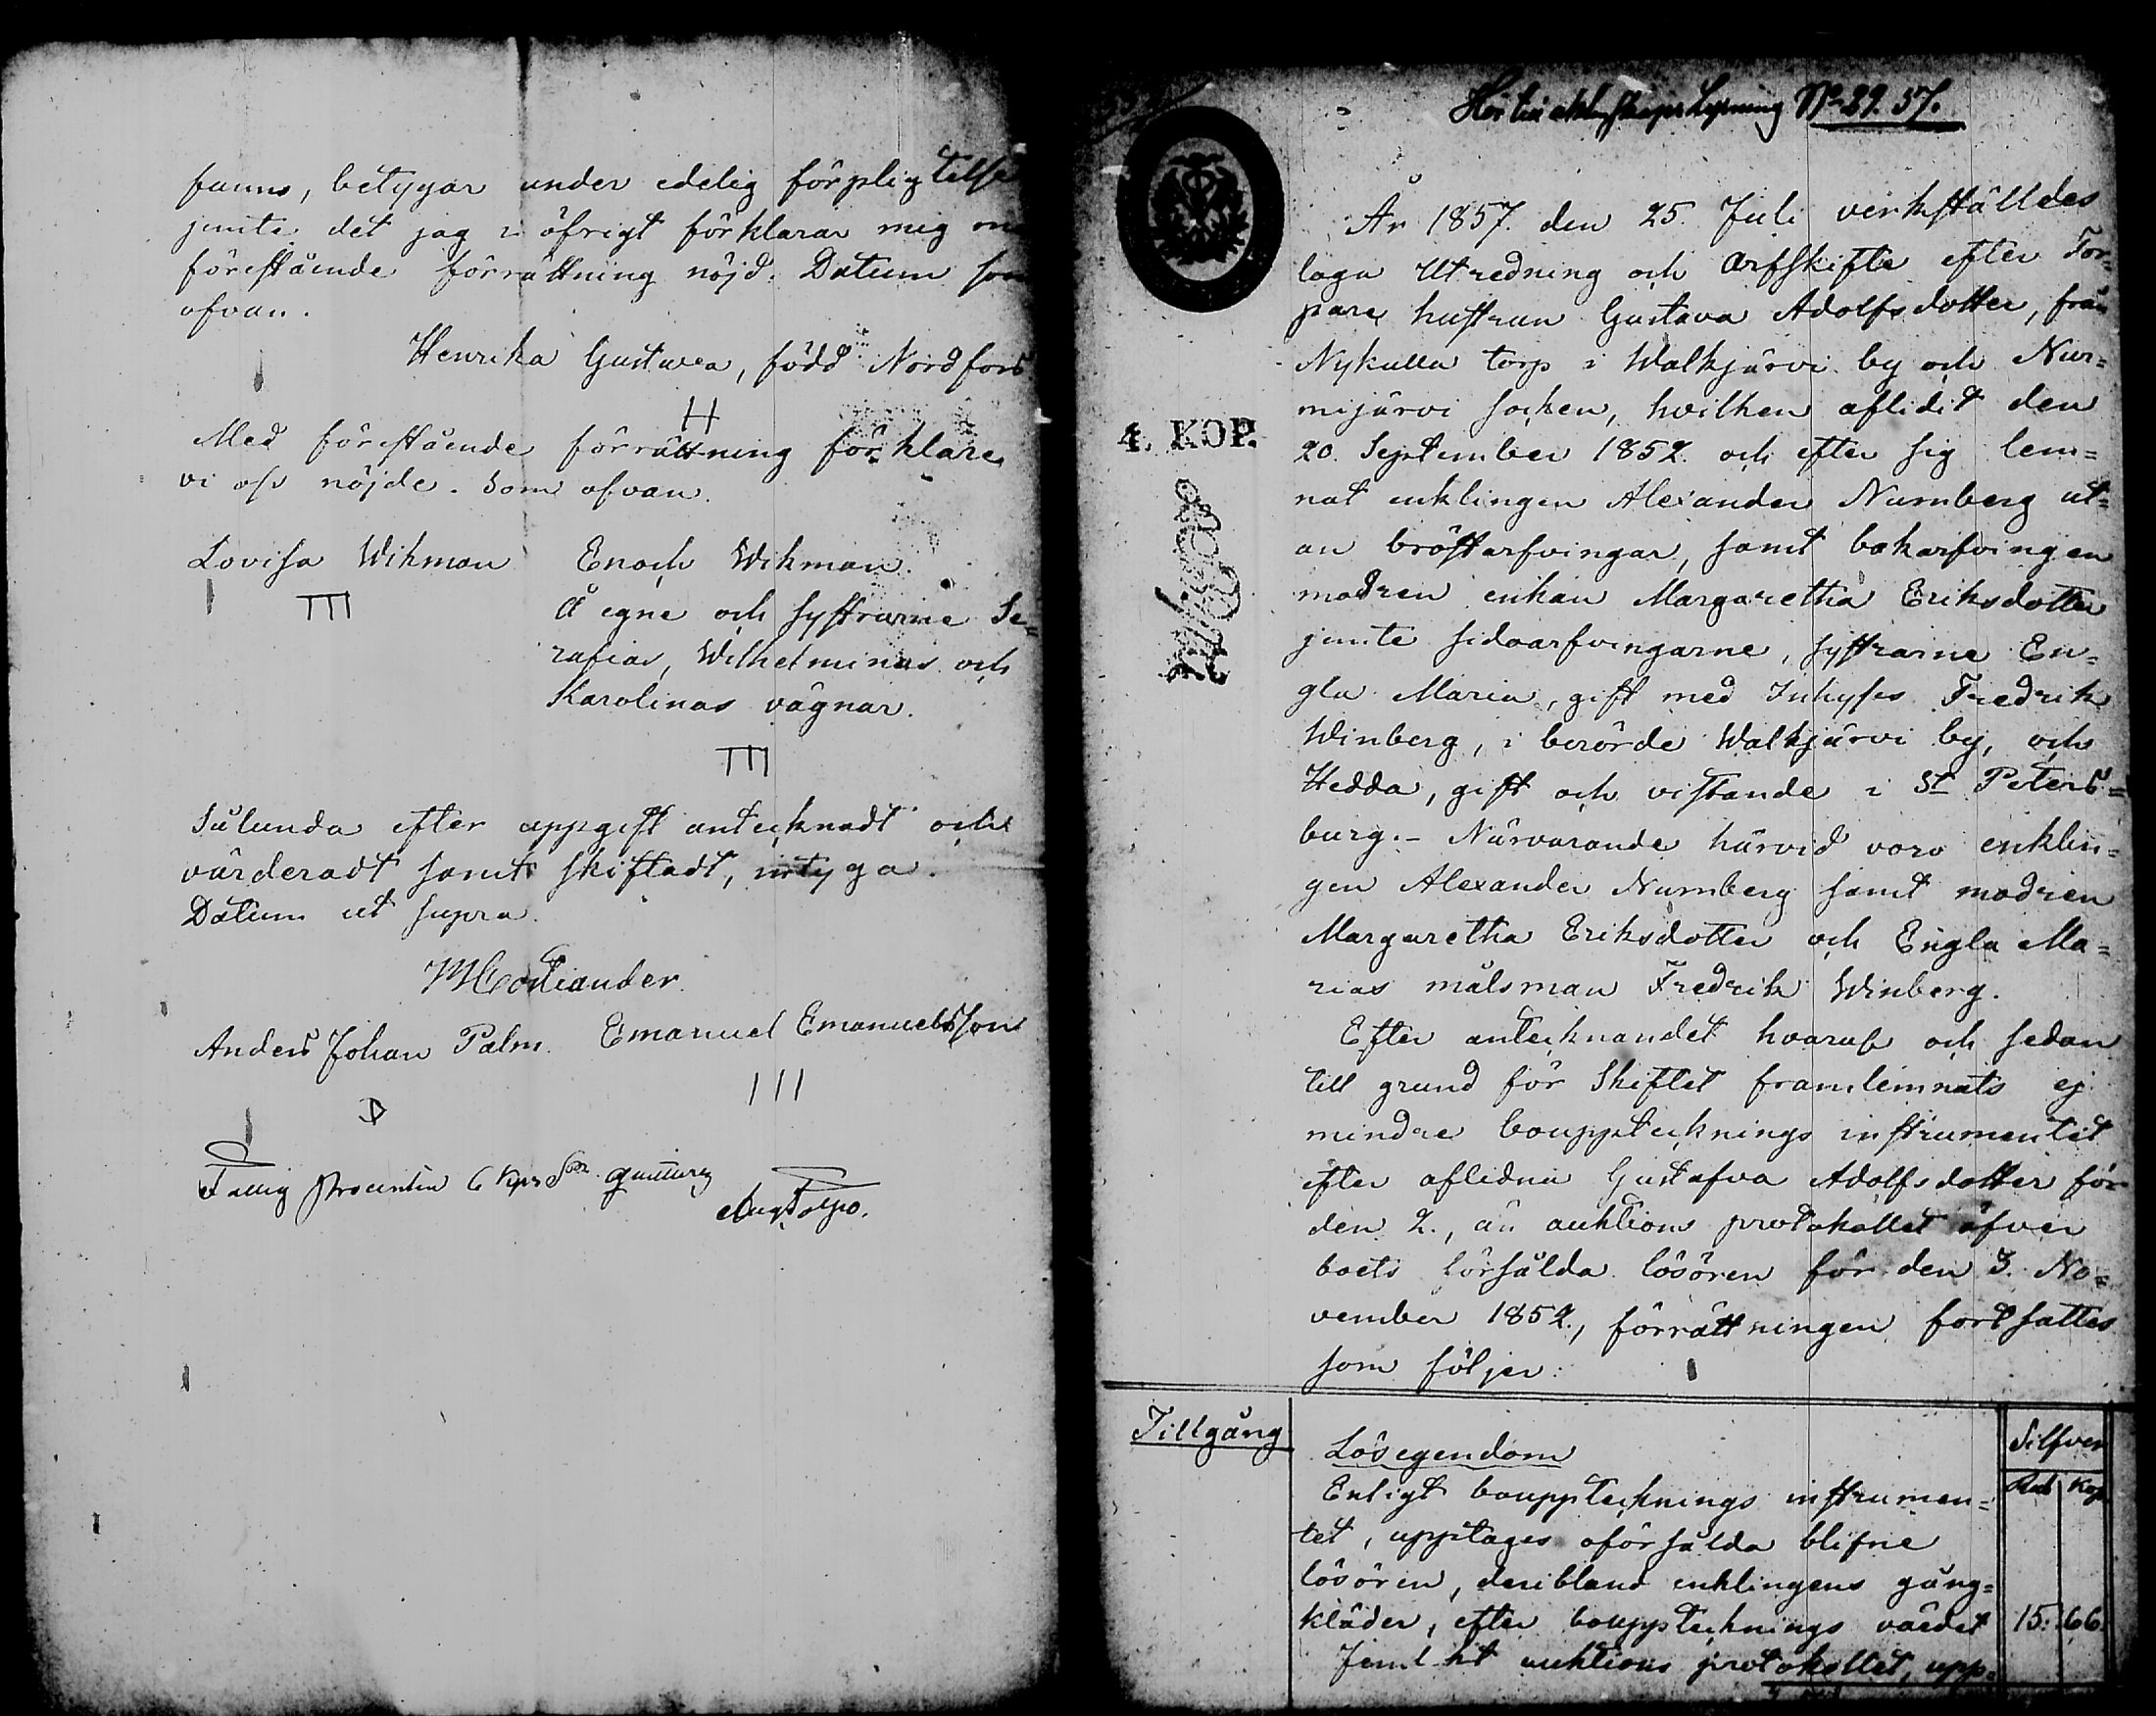 funns, betygar under edelig förpligtelse
jemte det jag i öfrigt förklarar mig
förestående förrättning nöjd. Datum som
ofvan.
Henrika Gustava, född Nordfors
Med förestående förrättning förklare
vi oss nöjde. Som ofvan.
Lovisa Wikman
Enoch Wikman.
Å egne och systrarne Se=
rafias, Wilhelminas och
Karolinas vägnar.
Sålunda efter uppgift antecknadt och
värderadt samt skiftadt, intyga.
Datum ut supra.
Anders Johan Palm.
Emanuel Emanuelsson
Fattig Procenten 6 Kop Sr
N:o 29. 57.
År 1857. den 25. Juli verkställdes
laga Utredning och Arfskifte efter Tor=
pare hustrun Gustava Adolfsdotter, från
Nykulla torp i Walkjärvi by och Nur=
mijärvi socken, hvilken aflidit den
20. September 1852. och efter sig lem=
nat enklingen Alexander Nurnberg ut=
an bröstarfvingar, samt bakarfvingen
modren enkan Margaretha Eriksdotter
jemte sidoarfvingarne, systrarne En=
gla Maria, gift med Inhyses Fredrik
Winberg, i berörde Walkjärvi by, och
Hedda, gift och vistande i St Peters=
burg. - Närvarande härvid voro enklin=
gen Alexander Nurnberg samt modren
Margaretha Eriksdotter och Engla Ma=
rias målsman Fredrik Winberg.
Efter antecknandet hvaraf och sedan
till grund för Skiftet framlemnats ej
mindre bouppteknings instrumentet
efter aflidna Gustafva Adolfsdotter för
den 2., än auktions protokollet öfver
boets försålda lösören för den 3. No=
vember 1852., förrättningen fortsattes
som följer:
4. KOP.
Tillgång
Lösegendom
Silfver
Rub Kop
Enligt bouppteknings instrumen=
tet, upptages oförsålda blifne
lösören, deribland enklingens gång=
kläder, efter bouppteknings värdet 15. 66.
Jemlikt auktions protokollet, upp=